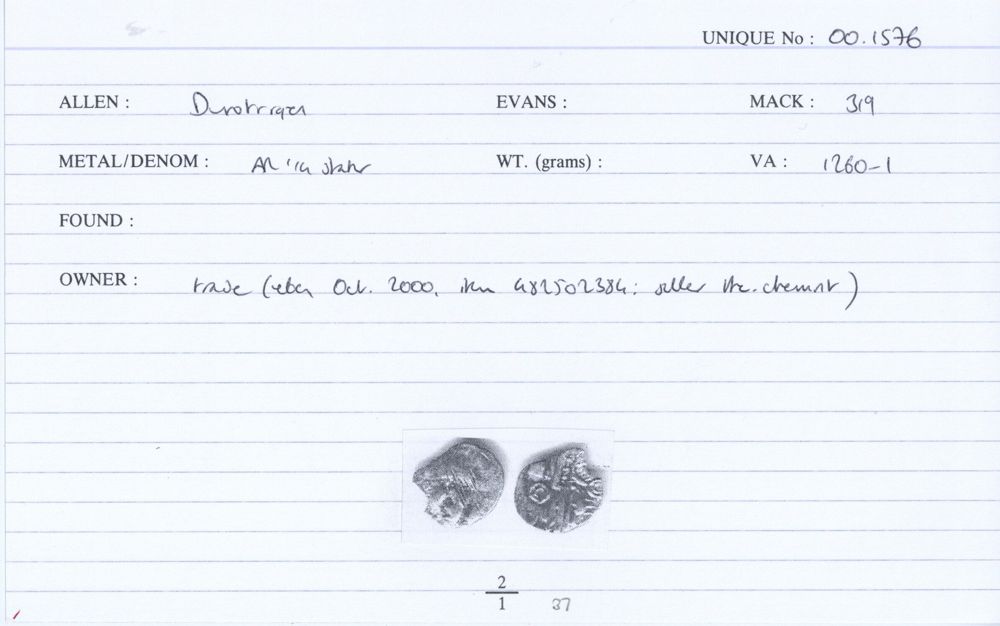 UNIQUE No : 00.1576
ALLEN : Durotriges EVANS : MACK : 319
METAL/DENOM : AR 1/4 stater WT. (grams) : VA : 1260-1
FOUND :
OWNER : trade (ebay Oct. 2000, item 482502384: seller the.chemist)
2
1 37